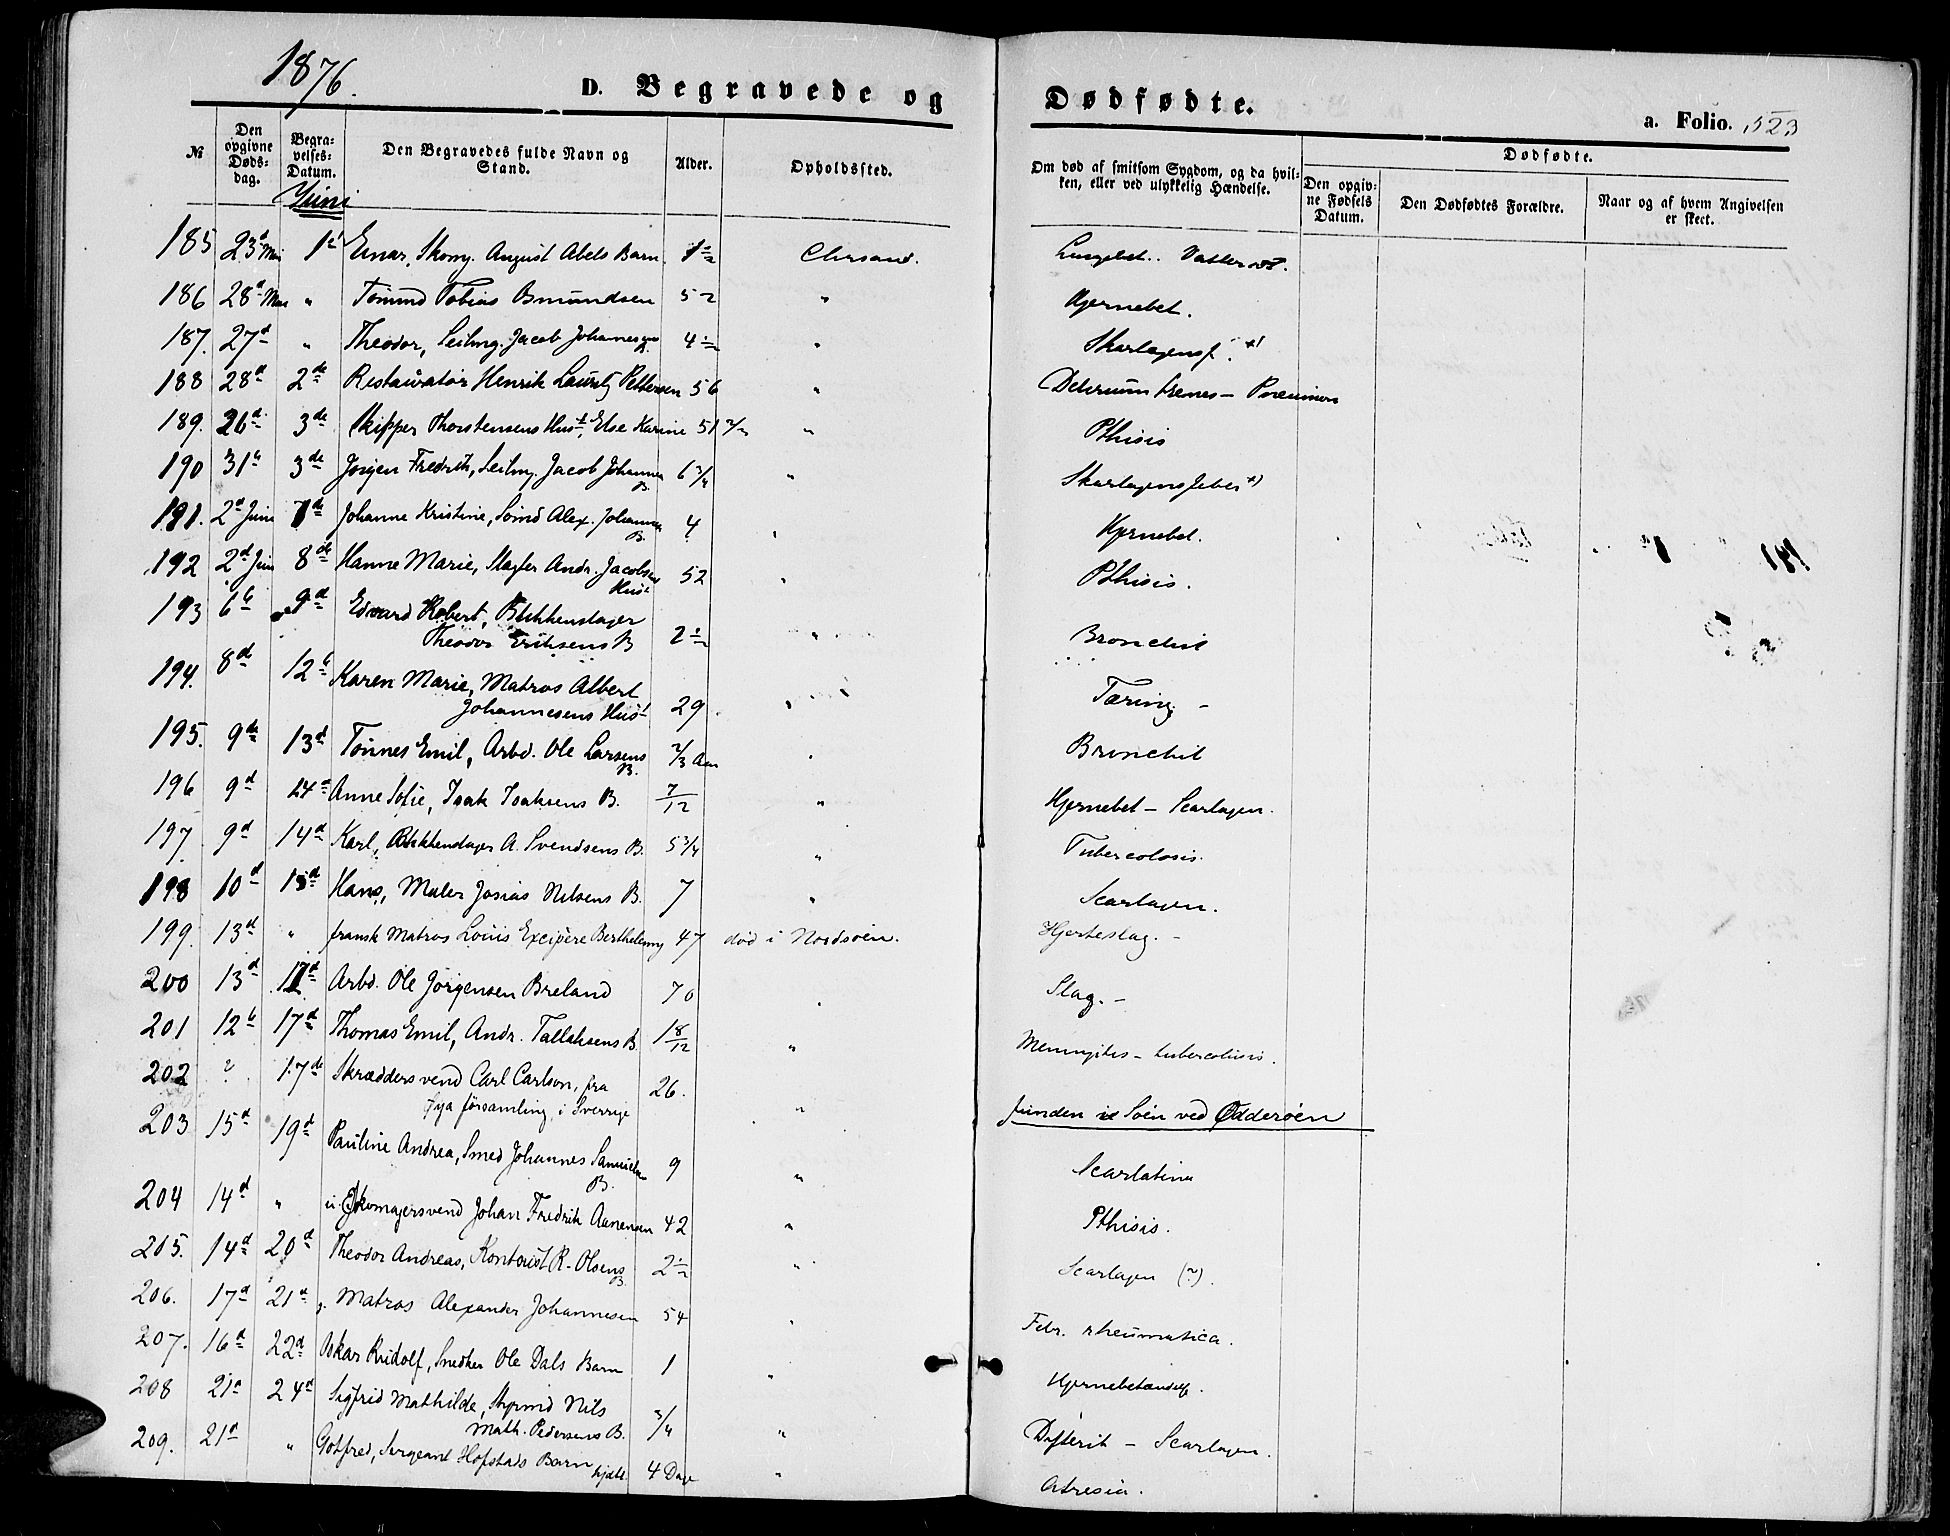 1876.
D. Begravede og Dødfødte.
a. Folio. 523
№ Den opgivne Døds-dag. Begra-velses-Datum. Den Begravedes fulde Navn og Stand. Alder. Opholdssted. Om død af smitsom Sygdom, og da hvil-ken, eller ved ulykkelig Hændelse. Dødfødte. Den opgiv-ne Fødsels Datum. Den Dødfødtes Forældre. Naar og af hvem Angivelsen er skeet.
Juni
185 23d Mai 1st Einar, Skom. August Abels Barn 1 1/2 Chrsand. Lungebet.
186 28d Mai " Tømmd Tobias Osmundsen 52 " Hjernebet.
187. 27d " Theodor, Seilmg. Jacob Johannesens B. 4 1/2 " Skarlagensf. +)
188 28d 2de Restauratør Henrik Lauritz Pettersen 56 " Delerium tremens – Pneumoni
189. 26d 3de Skipper Thorstensens Hust, Else Karine 51 1/2 " Pthisis
190 31te 3de Jørgen Fredrik, Seilmg. Jacob Johannes B. 6 3/4 " Skarlagensfeber +)
191. 2d Juni 7de Johanne Kristine, Sømd Alex. Johannes B. 4 " Hjernebet.
192 2d Juni 8de Hanne Marie, Slagter Andr. Jacobsens Hust 52 " Pthisis.
193 6te 9d Edvard Robert, Blikkenslager
Theodor Eriksens B 2 1/2 " Bronchit
194. 8d 12te Karen Marie, Matros Albert
Johannesens Hust 29 " Tæring –
195. 9de 13d Tønnes Emil, Arbd. Ole Larsens B. 2/3 Aar " Bronchit
196 9d 14d Anne Sofie, Isak Isaksens B. 7/12 " Hjernebet – Scarlagen.
197 9d 14d Karl, Blikkenslager A. Svendsens B. 5 3/4 " Tubercolosis.
198 10d 15d Hans, Maler Josias Nilsens B. 7 " Scarlagen.
199. 13d " fransk Matros Louis Exeipere Berthelemy 47 død i Nordsøen. Hjerteslag. –
200 13d 17d Arbd. Ole Jørgensen Breland 70 " Slag. –
201 12te 17d Thomas Emil, Andr. Tallaksens B. 1 8/12 " Meningitis – tubercolosis.
202 ? 17de Skræddersvend Carl Carlson, fra
Øya församling i Sverrige 26. " funden i Søen ved Odderøen
203 15d 19d Pauline Andrea, Smed Johannes Samuels B. 9 " Scarlatina
204 14d " u. Skomagersvend Johan Fredrik Aanensen 42 " Pthisis.
205. 14d 20d Theodor Andreas, Kontorist R. Olsens B. 2 1/2 " Scarlagen (?).
206. 17d 21d g. Matros Alexander Johannesen 54 " Febr. rheumatica.
207. 16d 22d Oskar Rudolf, Snedker Ole Dals Barn 1 " Hjernebetændelse.
208 21d 24d Sigfrid Mathilde, Styrmd Nils
Math. Pedersens B. 3/4 " Difterit – Scarlagen.
209. 21d " Gotfred, Sergeant Hofstads Barn hjdt. 4 Dage " Atresia.